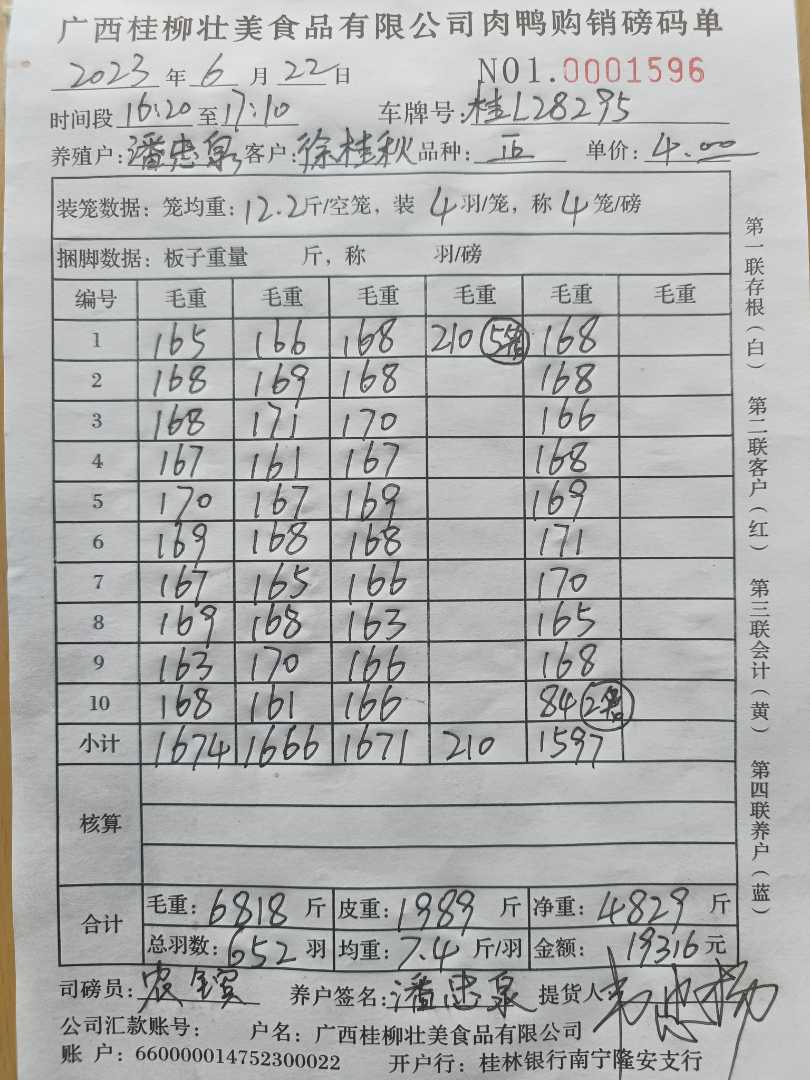 广西桂柳壮美食品有限公司肉鸭购销磅码单
2023 年 6 月 22 日 NO1.0001596
时间段 16:20 至 17:10 车牌号: 桂L28295
养殖户: 潘忠泉 客户: 徐桂秋 品种: 正 单价: 4.00
装笼数据: 笼均重: 12.2 斤/空笼, 装 4 羽/笼, 称 4 笼/磅
捆脚数据: 板子重量 斤, 称 羽/磅
编号 毛重 毛重 毛重 毛重 毛重 毛重
1 165 166 168 210 168
2 168 169 168 168
3 168 171 170 166
4 167 161 167 168
5 170 167 169 169
6 169 168 168 171
7 167 165 166 170
8 169 168 163 165
9 163 170 166 168
10 168 161 166 84
小计 1674 1666 1671 210 1597
核算
合计 毛重: 6818 斤 皮重: 1989 斤 净重: 4829 斤
总羽数: 652 羽 均重: 7.4 斤/羽 金额: 19316 元
司磅员: 养户签名: 潘忠泉 提货人
公司汇款账号: 户名: 广西桂柳壮美食品有限公司
账 户: 660000014752300022 开户行: 桂林银行南宁隆安支行
第一联存根(白) 第二联客户(红) 第三联会计(黄) 第四联养户(蓝)